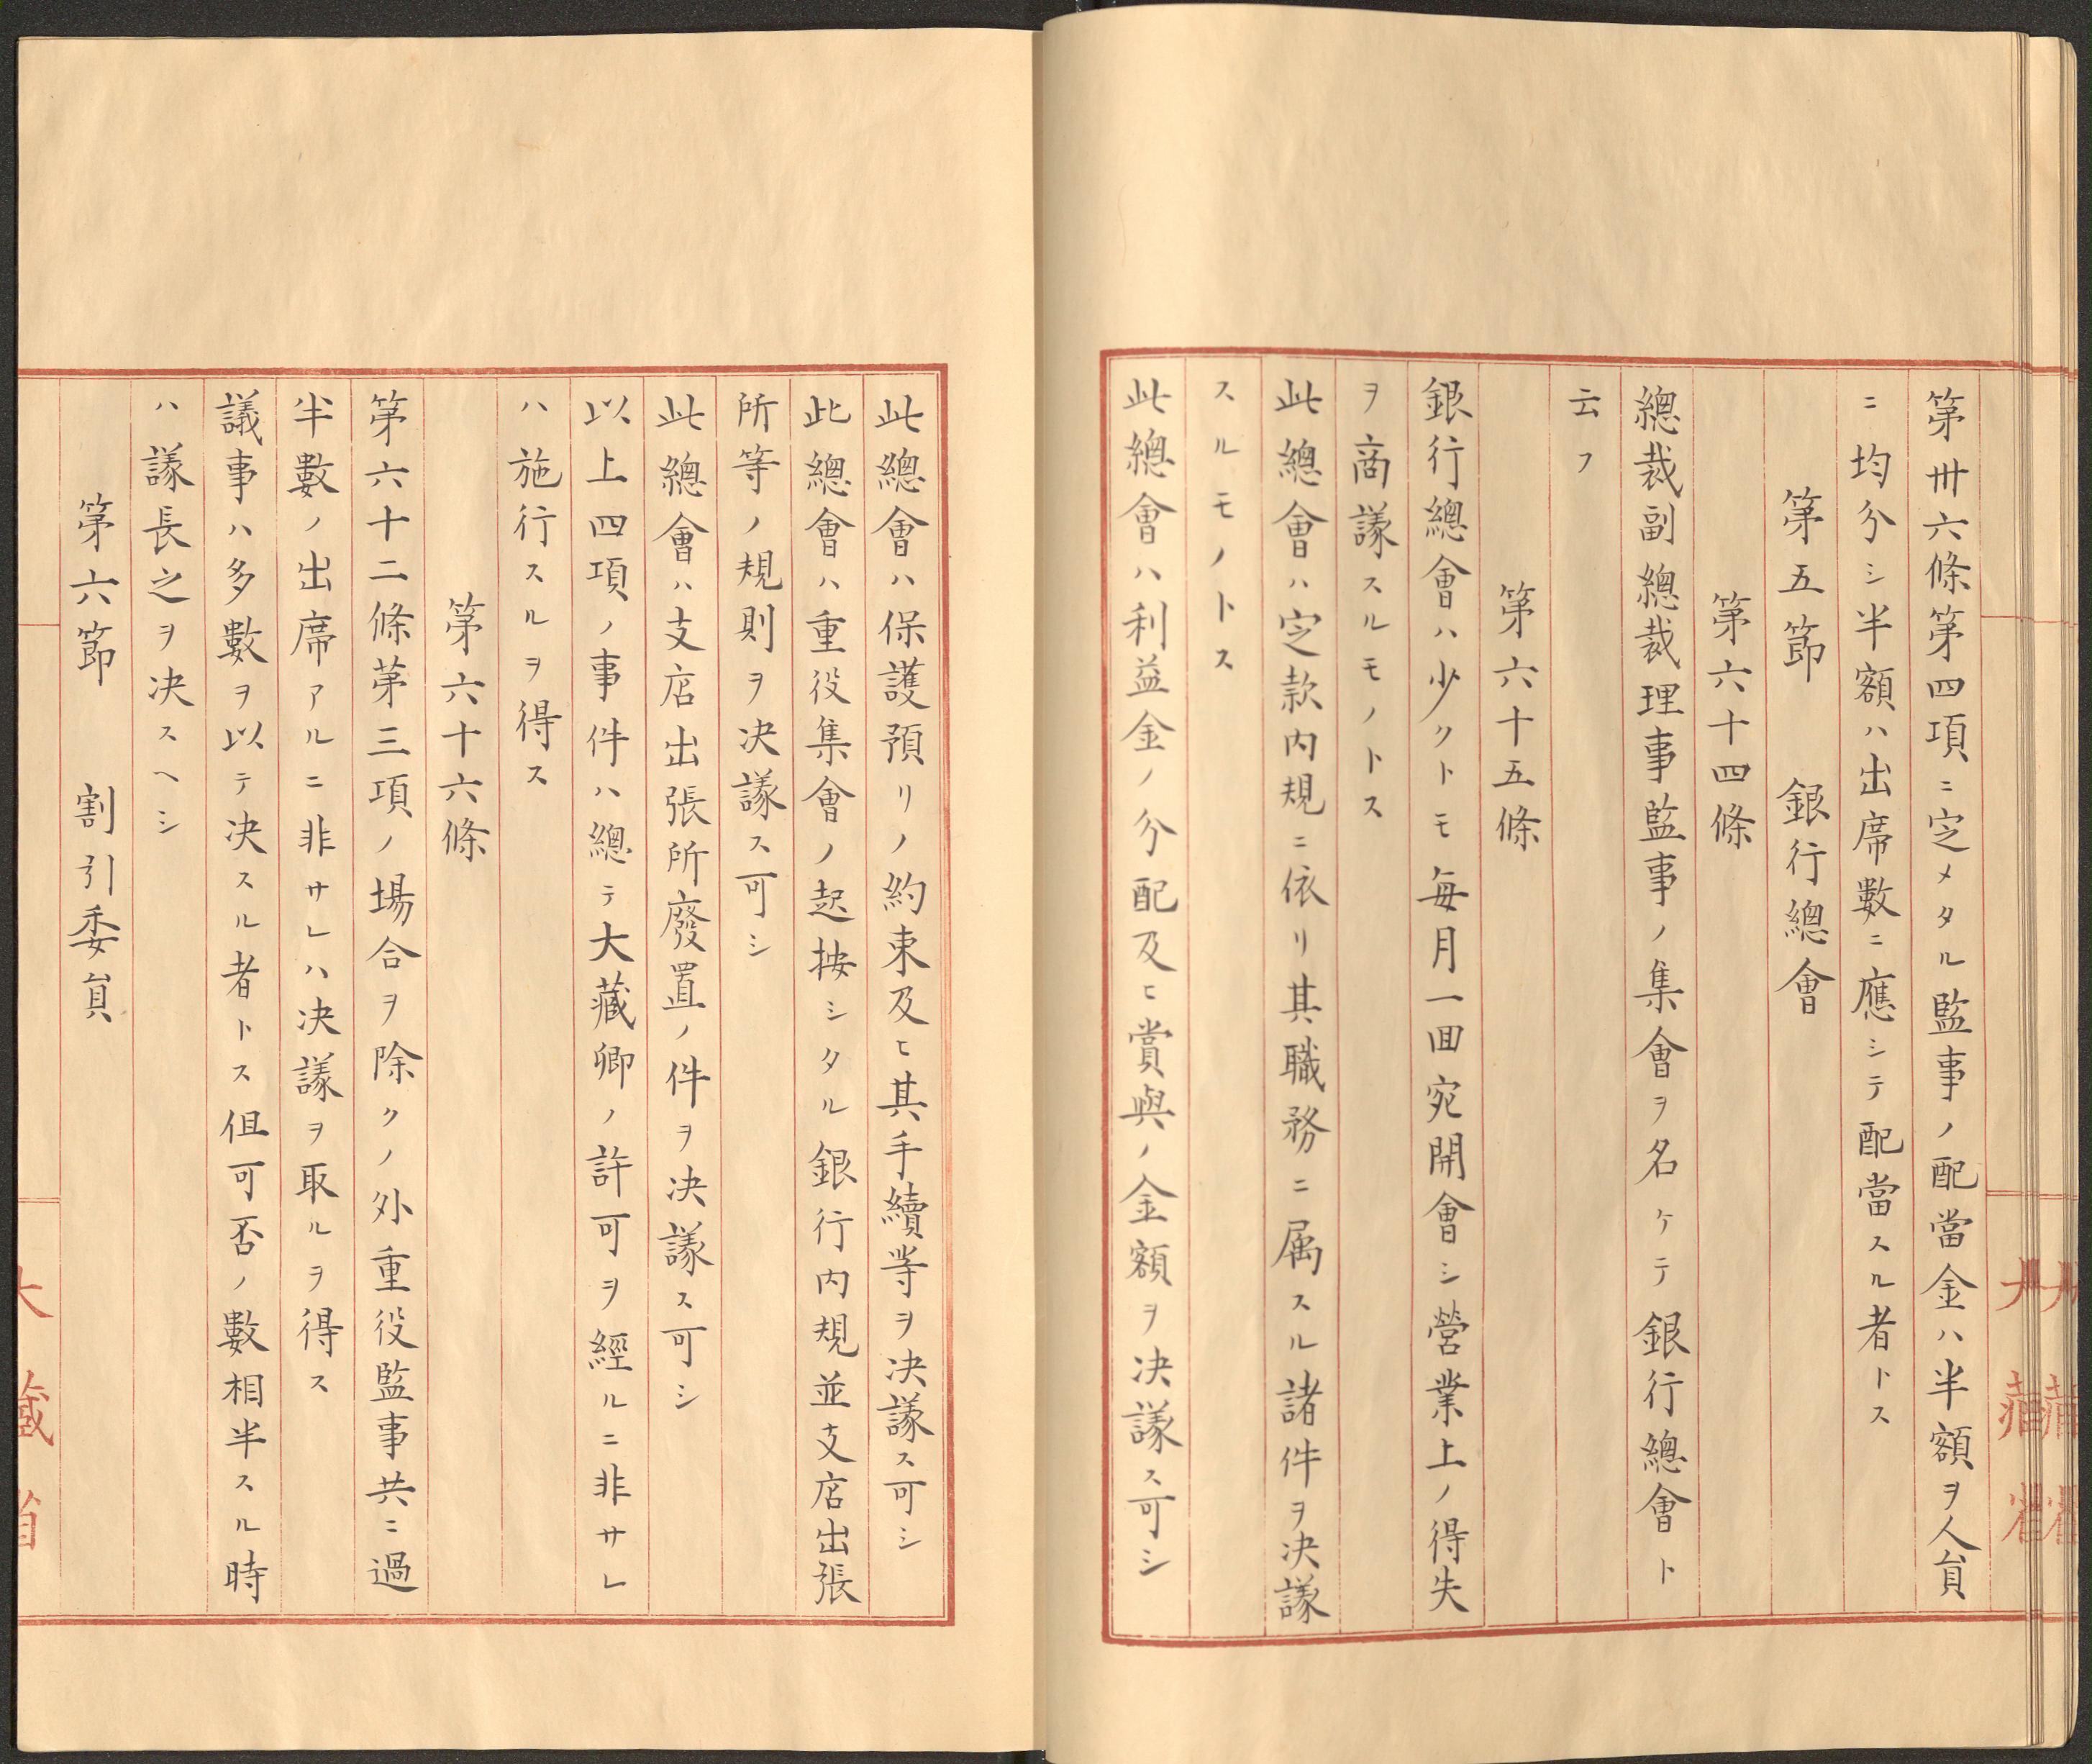 第卅六條第四項ニ定メタル監事ノ配當金ハ半額ヲ人員
ニ均分シ半額ハ出席數ニ應シテ配當スル者トス
第五節　銀行總會
第六十四條
總裁副總裁理事監事ノ集會ヲ名ケテ銀行總會ト
云フ
第六十五條
銀行總會ハ少クトモ毎月一回宛開會シ營業上ノ得失
ヲ商議スルモノトス
此總會ハ定款内規ニ依リ其職務ニ属スル諸件ヲ决議
スルモノトス
此總會ハ利益金ノ分配及ヒ賞與ノ金額ヲ决議ス可シ
此總會ハ保護預リノ約束及ヒ其手續等ヲ决議ス可シ
此總會ハ重役集會ノ起按シタル銀行内規並支店出張
所等ノ規則ヲ决議ス可シ
此總會ハ支店出張所廢置ノ件ヲ决議ス可シ
以上四項ノ事件ハ總テ大藏卿ノ許可ヲ經ルニ非サレ
ハ施行スルヲ得ス
第六十六條
第六十二條第三項ノ場合ヲ除クノ外重役監事共ニ過
半數ノ出席アルニ非サレハ决議ヲ取ルヲ得ス
議事ハ多數ヲ以テ决スル者トス但可否ノ數相半スル時
ハ議長之ヲ决スヘシ
第六節　割引委員
大藏省